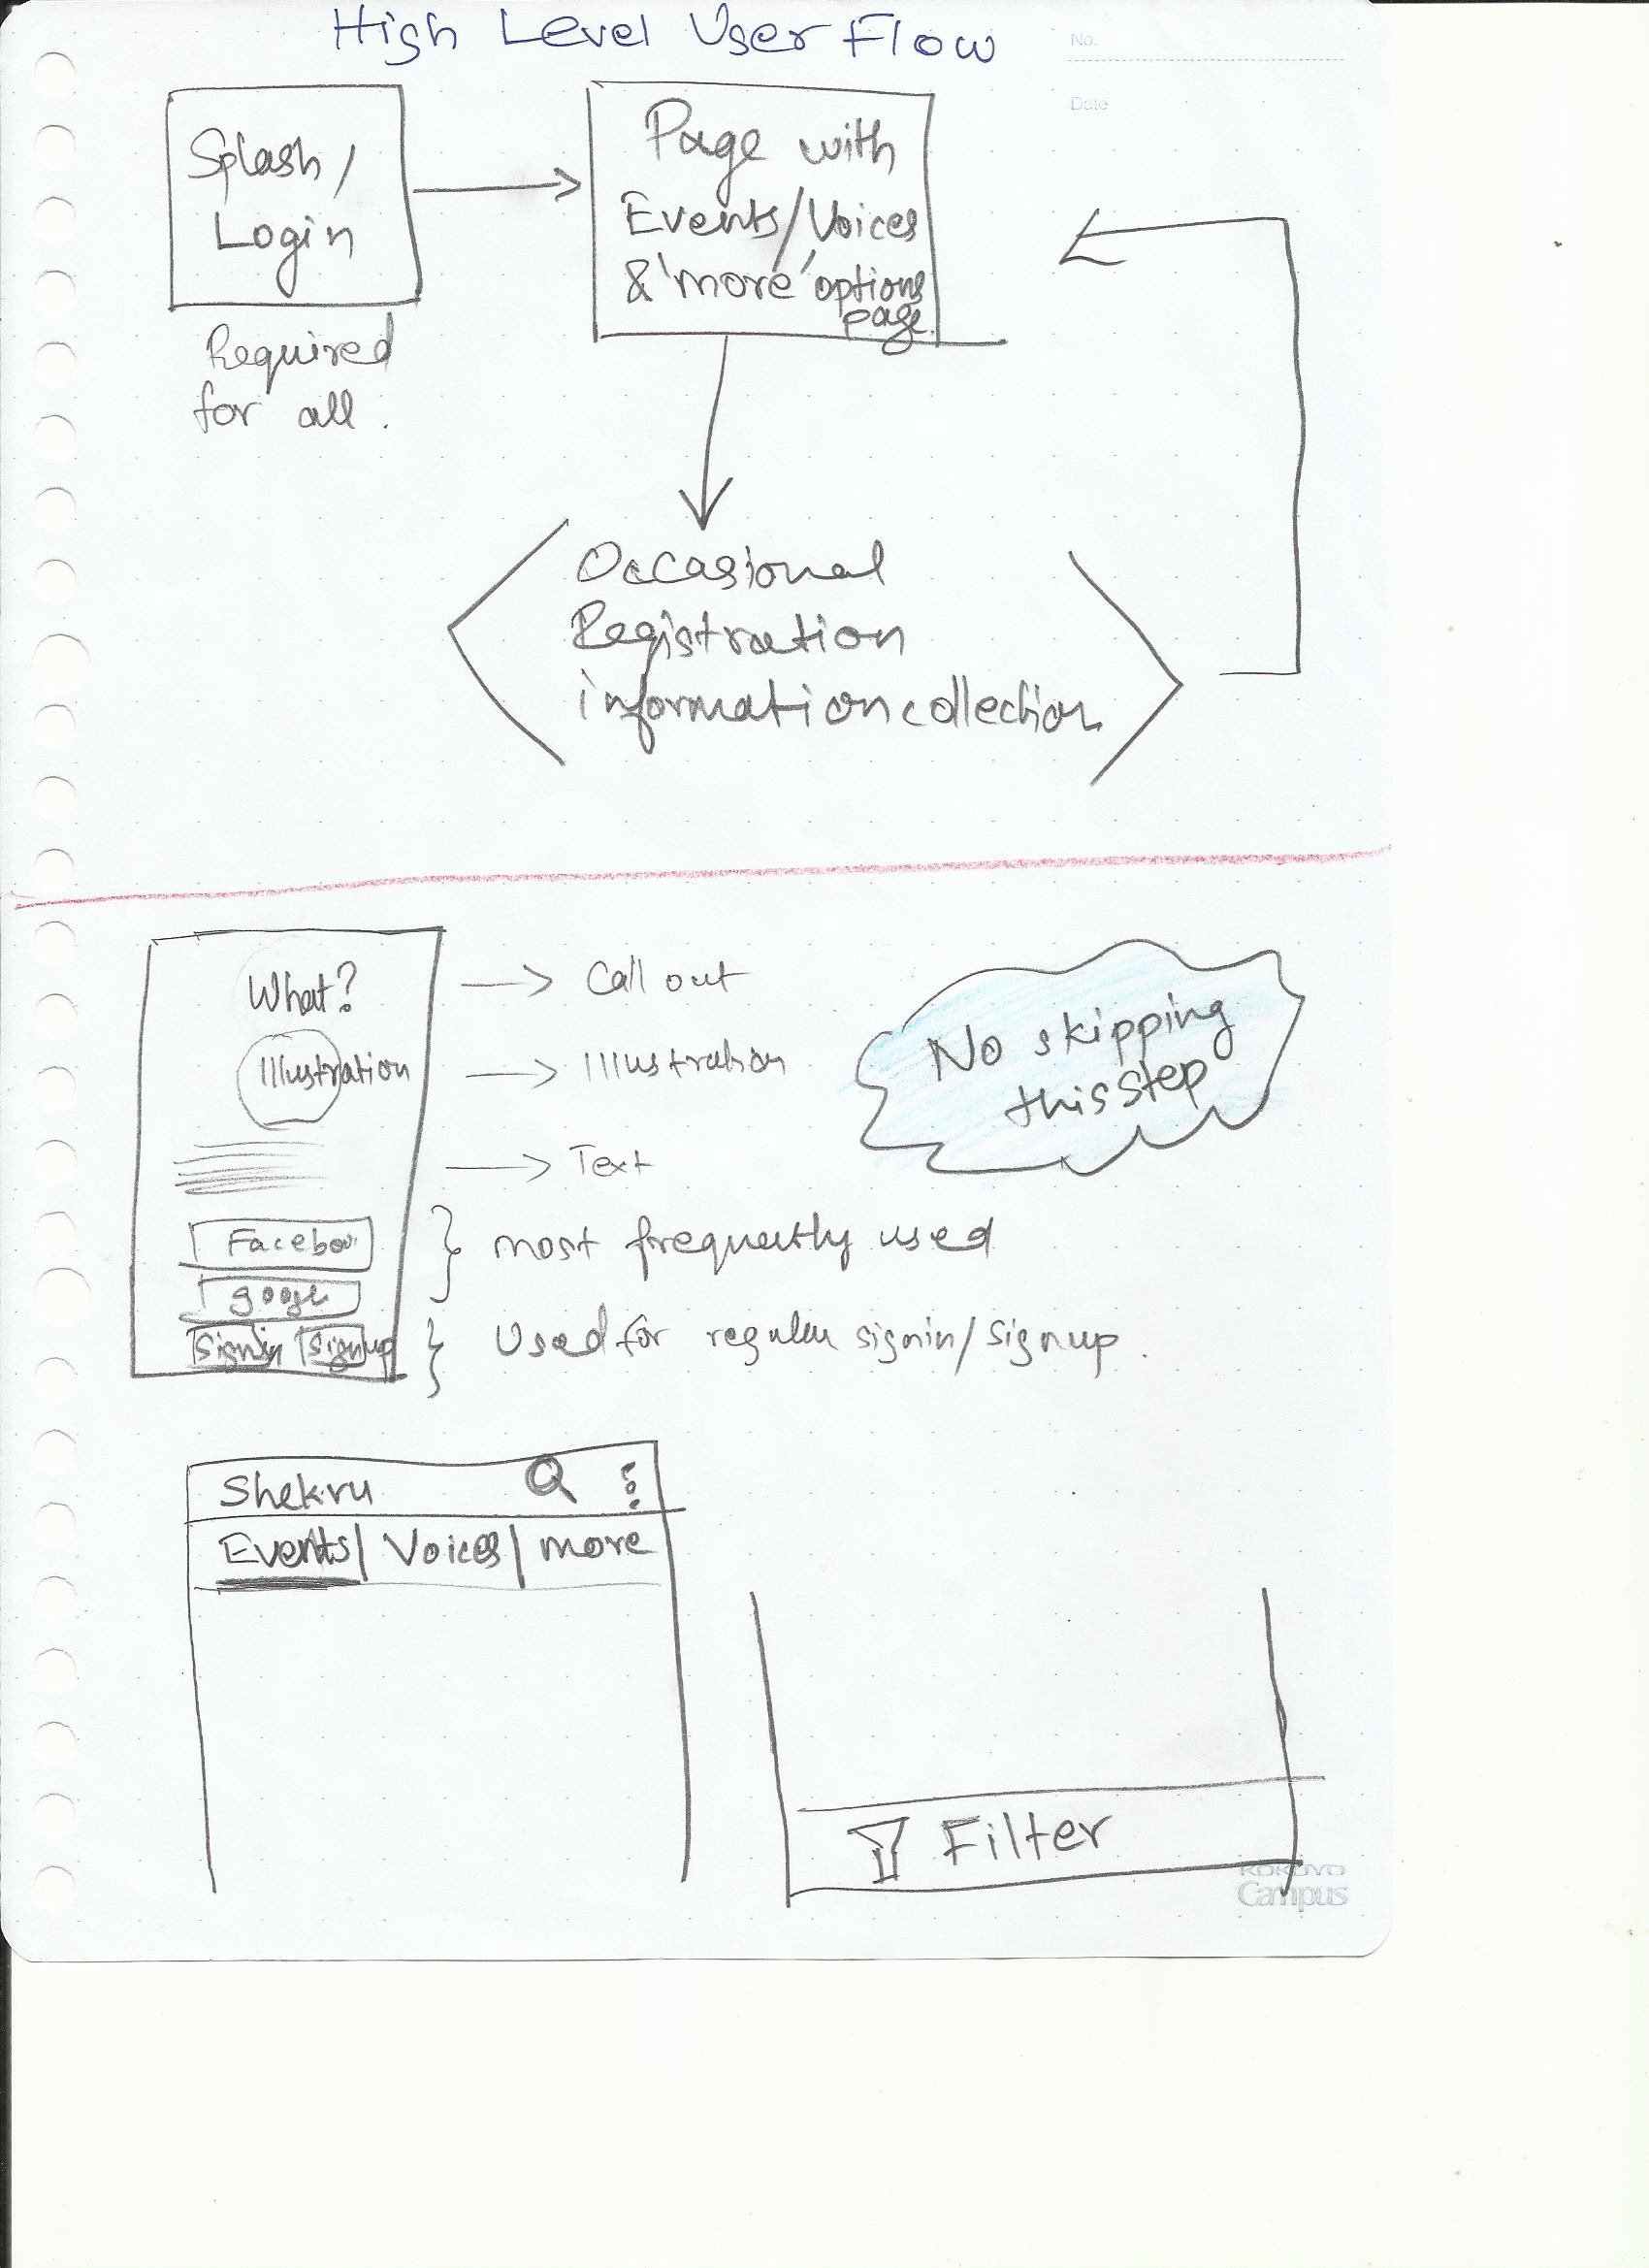 High Level User Flow
No.
Date
Splash/
Login
Required
for all.
Page with
Events/Voices
& 'more' options
page.
Occasional
Registration
information collection
What?
Illustration
Facebou
google
Signin Signup
Call out
Illustration
Text
most frequently used
Used for regular signin/signup.
No skipping
this step
Shekru
Events/ Voices/ more
Filter
KOKUYO
Campus